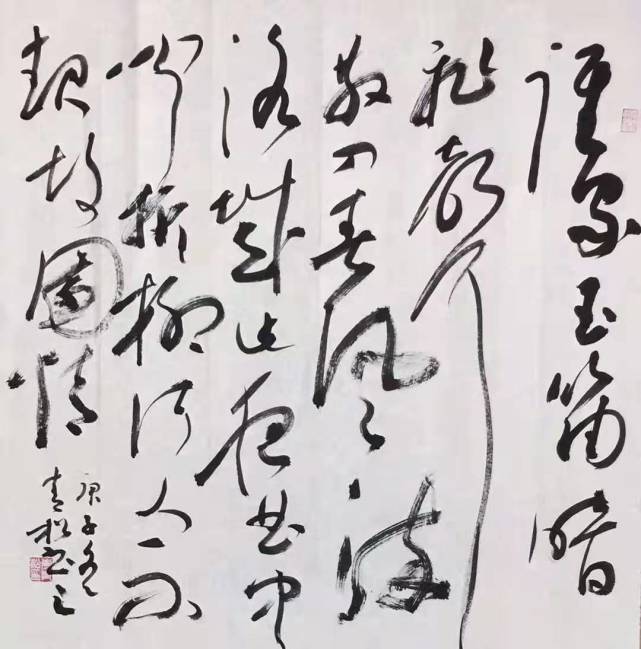 誰家玉笛暗
飛聲
散入春風滿
洛城此夜曲中
聞折柳何人不
起故園情
庚子冬
青松书之